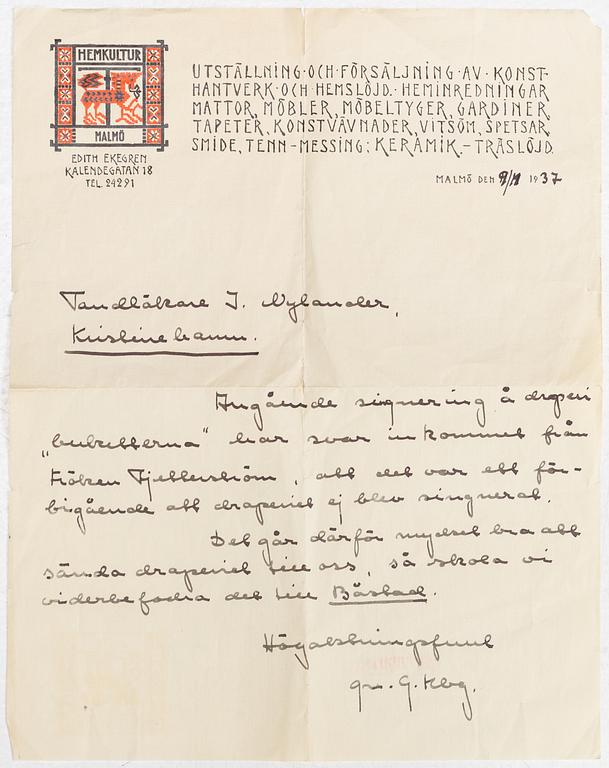 HEMKULTUR
MALMÖ
EDITH EKEGREN
KALENDEGATAN 18
TEL. 24291
UTSTÄLLNING·OCH·FÖRSÄLJNING·AV·KONST-
HANTVERK·OCH·HEMSLÖJD·HEMINREDNINGAR
MATTOR, MÖBLER, MÖBELTYGER, GARDINER
TAPETER, KONSTVÄVNADER, VITSÖM, SPETSAR
SMIDE, TENN-MESSING; KERAMIK.-TRÄSLÖJD.
MALMÖ DEN 1937
Tandläkare J. Nylander,
Kristinehamn.
Angående signering å draperi
har svar inkommet från
Fröken Fjetterström, att det var ett för-
bigående att draperiet ej blev singnerat.
Det går därför mycket bra att
sända draperiet till oss, så skola vi
viderbefodra det till Båstad.
Högaktningsfullt